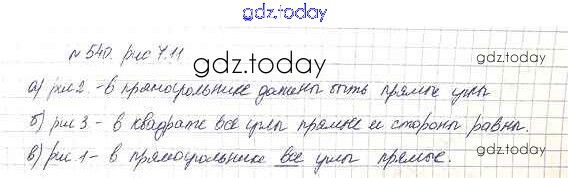 gdz.today
№ 540. рис 7.11
gdz.today
а) рис 2. - в прямоугольнике должны быть прямые углы
gdz.today
б) рис 3 - в квадрате все углы прямые и стороны равны.
в) рис. 1 - в прямоугольнике все углы прямые.
gdz.today